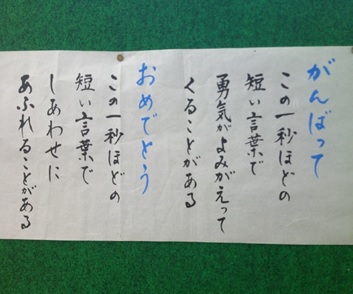 がんばって
この一秒ほどの
短い言葉で
勇気がよみがえって
くることがある
おめでとう
この一秒ほどの
短い言葉で
しあわせに
あふれることがある